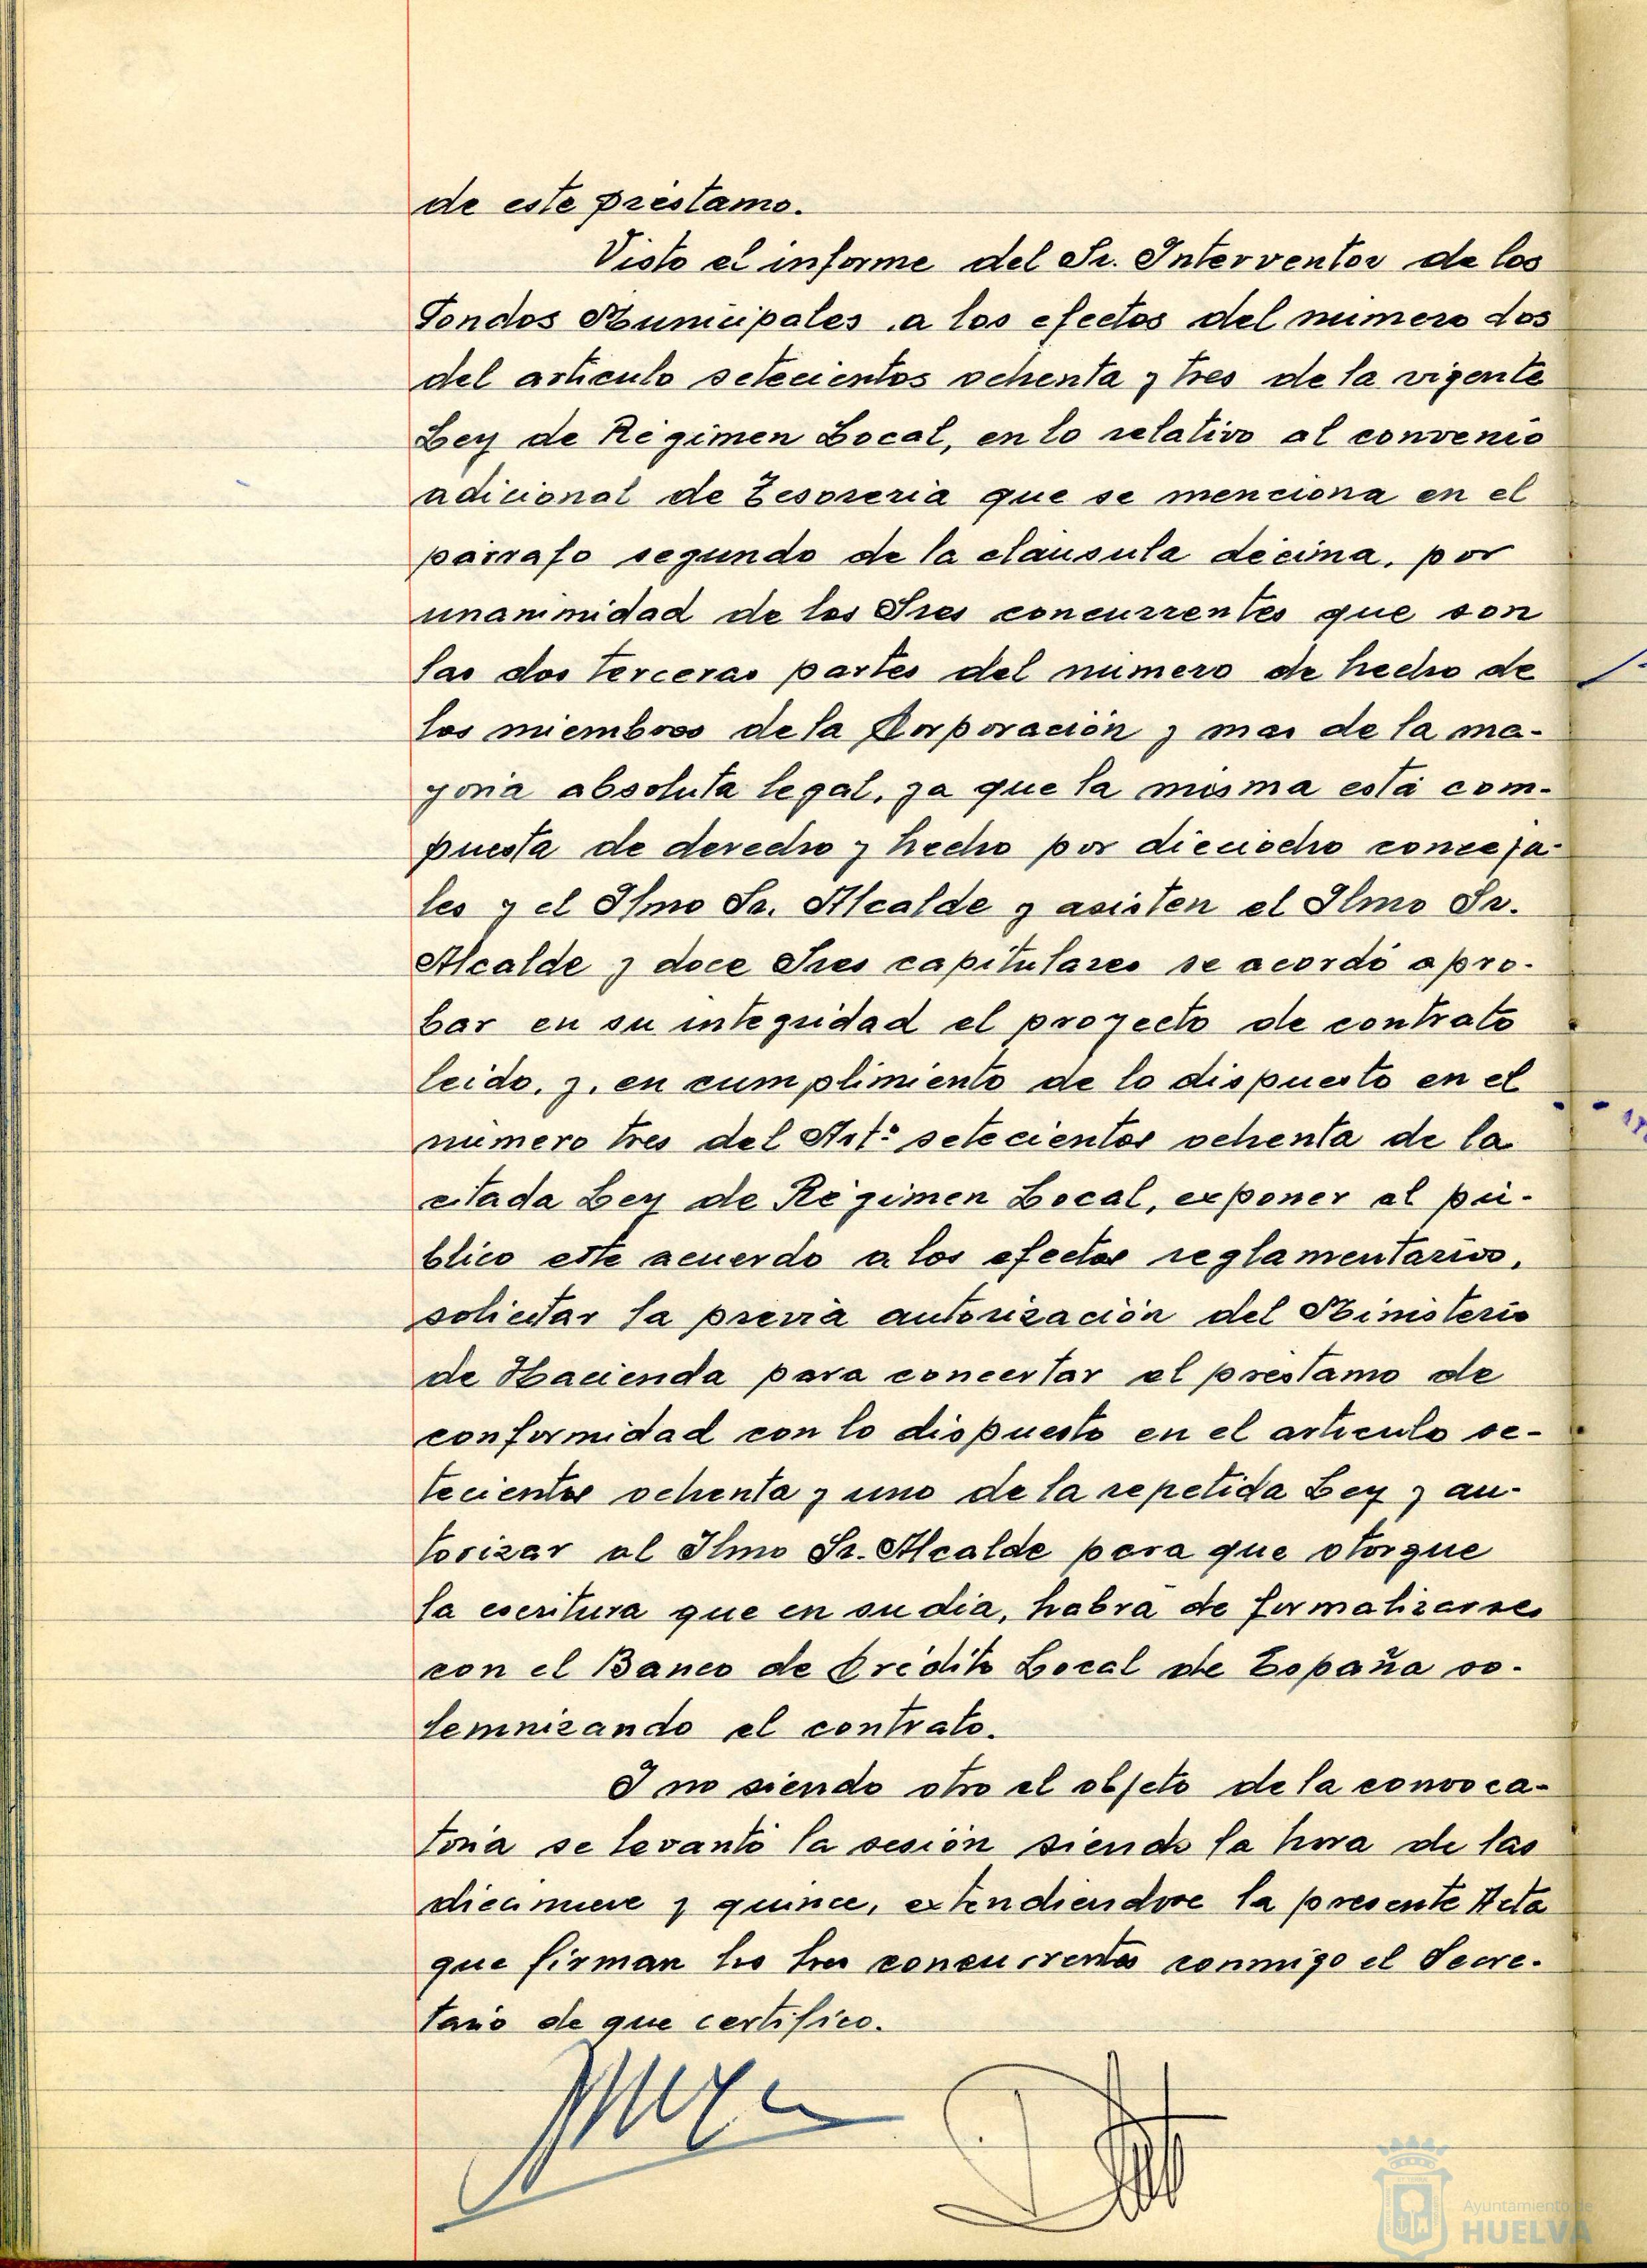 de este préstamo.
Visto el informe del Sr. Interventor de los
Fondos Municipales a los efectos del número dos
del artículo setecientos ochenta y tres de la vigente
Ley de Régimen Local, en lo relativo al convenio
adicional de Tesorería que se menciona en el
párrafo segundo de la cláusula décima, por
unanimidad de los Sres concurrentes que son
las dos terceras partes del número de hecho de
los miembros de la Corporación y mas de la ma-
yoría absoluta legal, ya que la misma está com-
puesta de derecho y hecho por dieciocho conceja-
les y el Ilmo Sr. Alcalde y asisten el Ilmo Sr.
Alcalde y doce Sres capitulares se acordó apro-
bar en su integridad el proyecto de contrato
leido, y, en cumplimiento de lo dispuesto en el
número tres del Artº setecientos ochenta de la
citada Ley de Régimen Local, exponer al pú-
blico este acuerdo a los efectos reglamentarios,
solicitar la previa autorización del Ministerio
de Hacienda para concertar el préstamo de
conformidad con lo dispuesto en el artículo se-
tecientos ochenta y uno de la repetida Ley y au-
torizar al Ilmo Sr. Alcalde para que otorgue
la escritura que en su dia, habrá de formalizarse
con el Banco de Crédito Local de España so-
lemnizando el contrato.
Y no siendo otro el objeto de la convoca-
toria se levantó la sesión siendo la hora de las
diecinueve y quince, extendiendose la presente Acta
que firman los Sres concurrentes conmigo el Secre-
tario de que certifico.
Ayuntamiento de
HUELVA